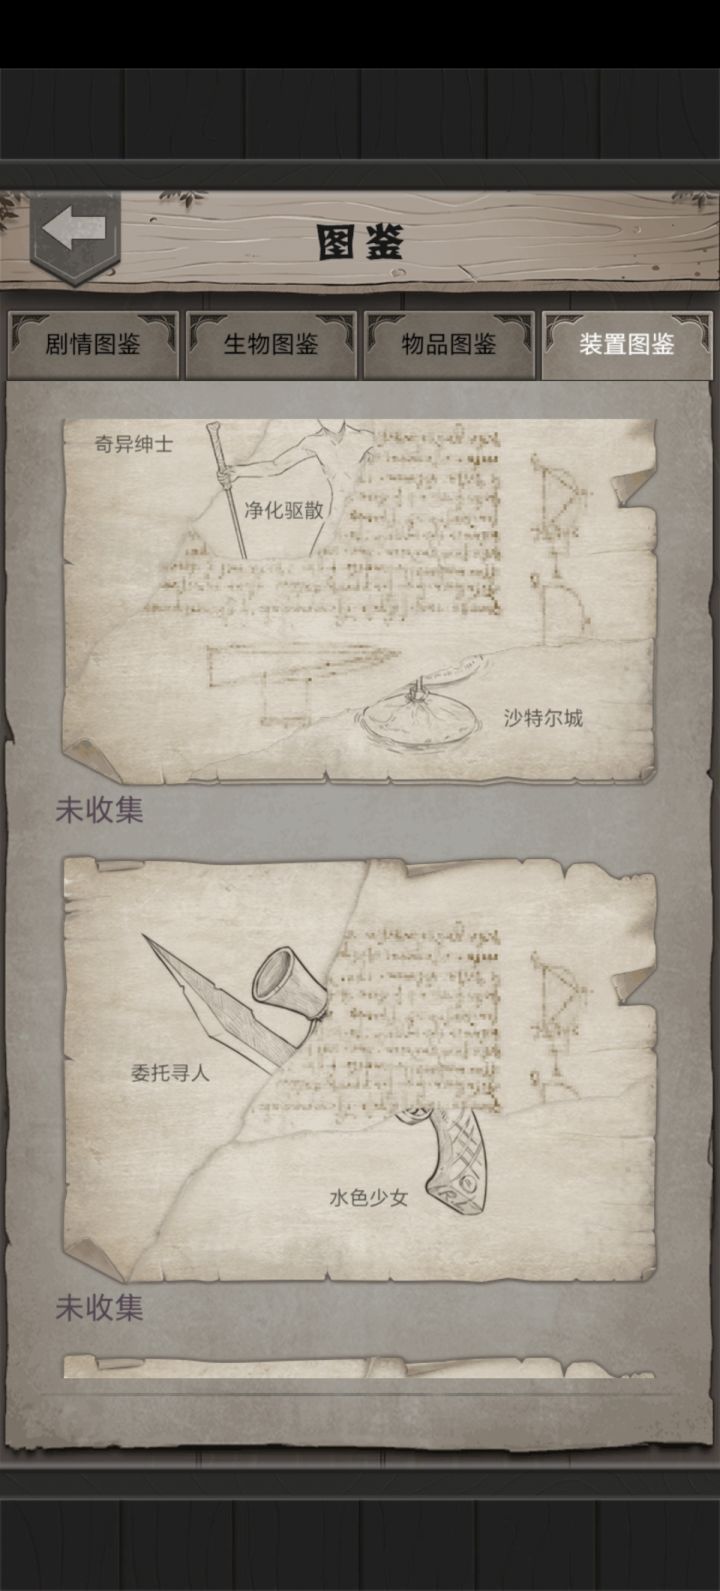 图鉴
剧情图鉴
生物图鉴
物品图鉴
装置图鉴
奇异绅士
净化驱散
沙特尔城
未收集
委托寻人
水色少女
未收集